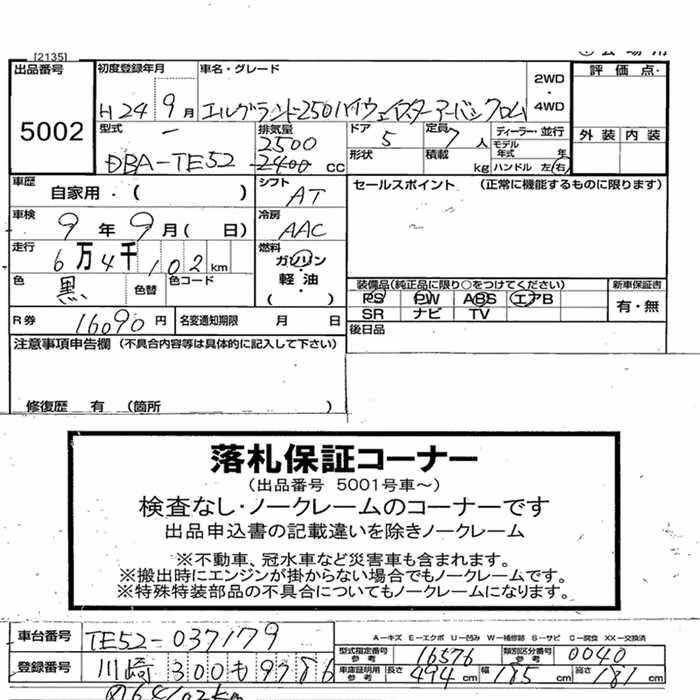 [2135]
出品番号
5002
初度登録年月 車名・グレード
H24 9月 エルグランド250ハイウェイスターアーバンクロム
2WD
・
4WD
評価点
外装 内装
型式 排気量 ドア 定員 ディーラー・並行
DBA-TE52 2500 2400 cc 5 7人
モデル年式 年
形状 積載 kg ハンドル 左・右
車歴 自家用・( )
シフト AT
セールスポイント (正常に機能するものに限ります)
車検 9年9月( 日)
冷房 AAC
走行 6万4千102km
燃料 ガソリン
・
軽油
( )
色 黒 色替 色コード
装備品(純正品に限り○をつけてください) 新車保証書
PS PW ABS エアB 有・無
SR ナビ TV
R券 16090円 名変通知期限 月 日
後日品
注意事項申告欄 (不具合内容等は具体的に記入して下さい)
修復歴 有 (箇所 )
落札保証コーナー
(出品番号 5001号車～)
検査なし・ノークレームのコーナーです
出品申込書の記載違いを除きノークレーム
※不動車、冠水車など災害車も含まれます。
※搬出時にエンジンが掛からない場合でもノークレームです。
※特殊特装部品の不具合についてもノークレームになります。
車台番号 TE52-037179
A-キズ E-エクボ U-凹み W-補修跡 S-サビ C-腐食 XX-交換済
型式指定番号 参考 16576 類別区分番号 参考 0040
登録番号 川崎 300も9786
車庫証明用 参考 長さ 494cm 幅 185cm 高さ 181cm